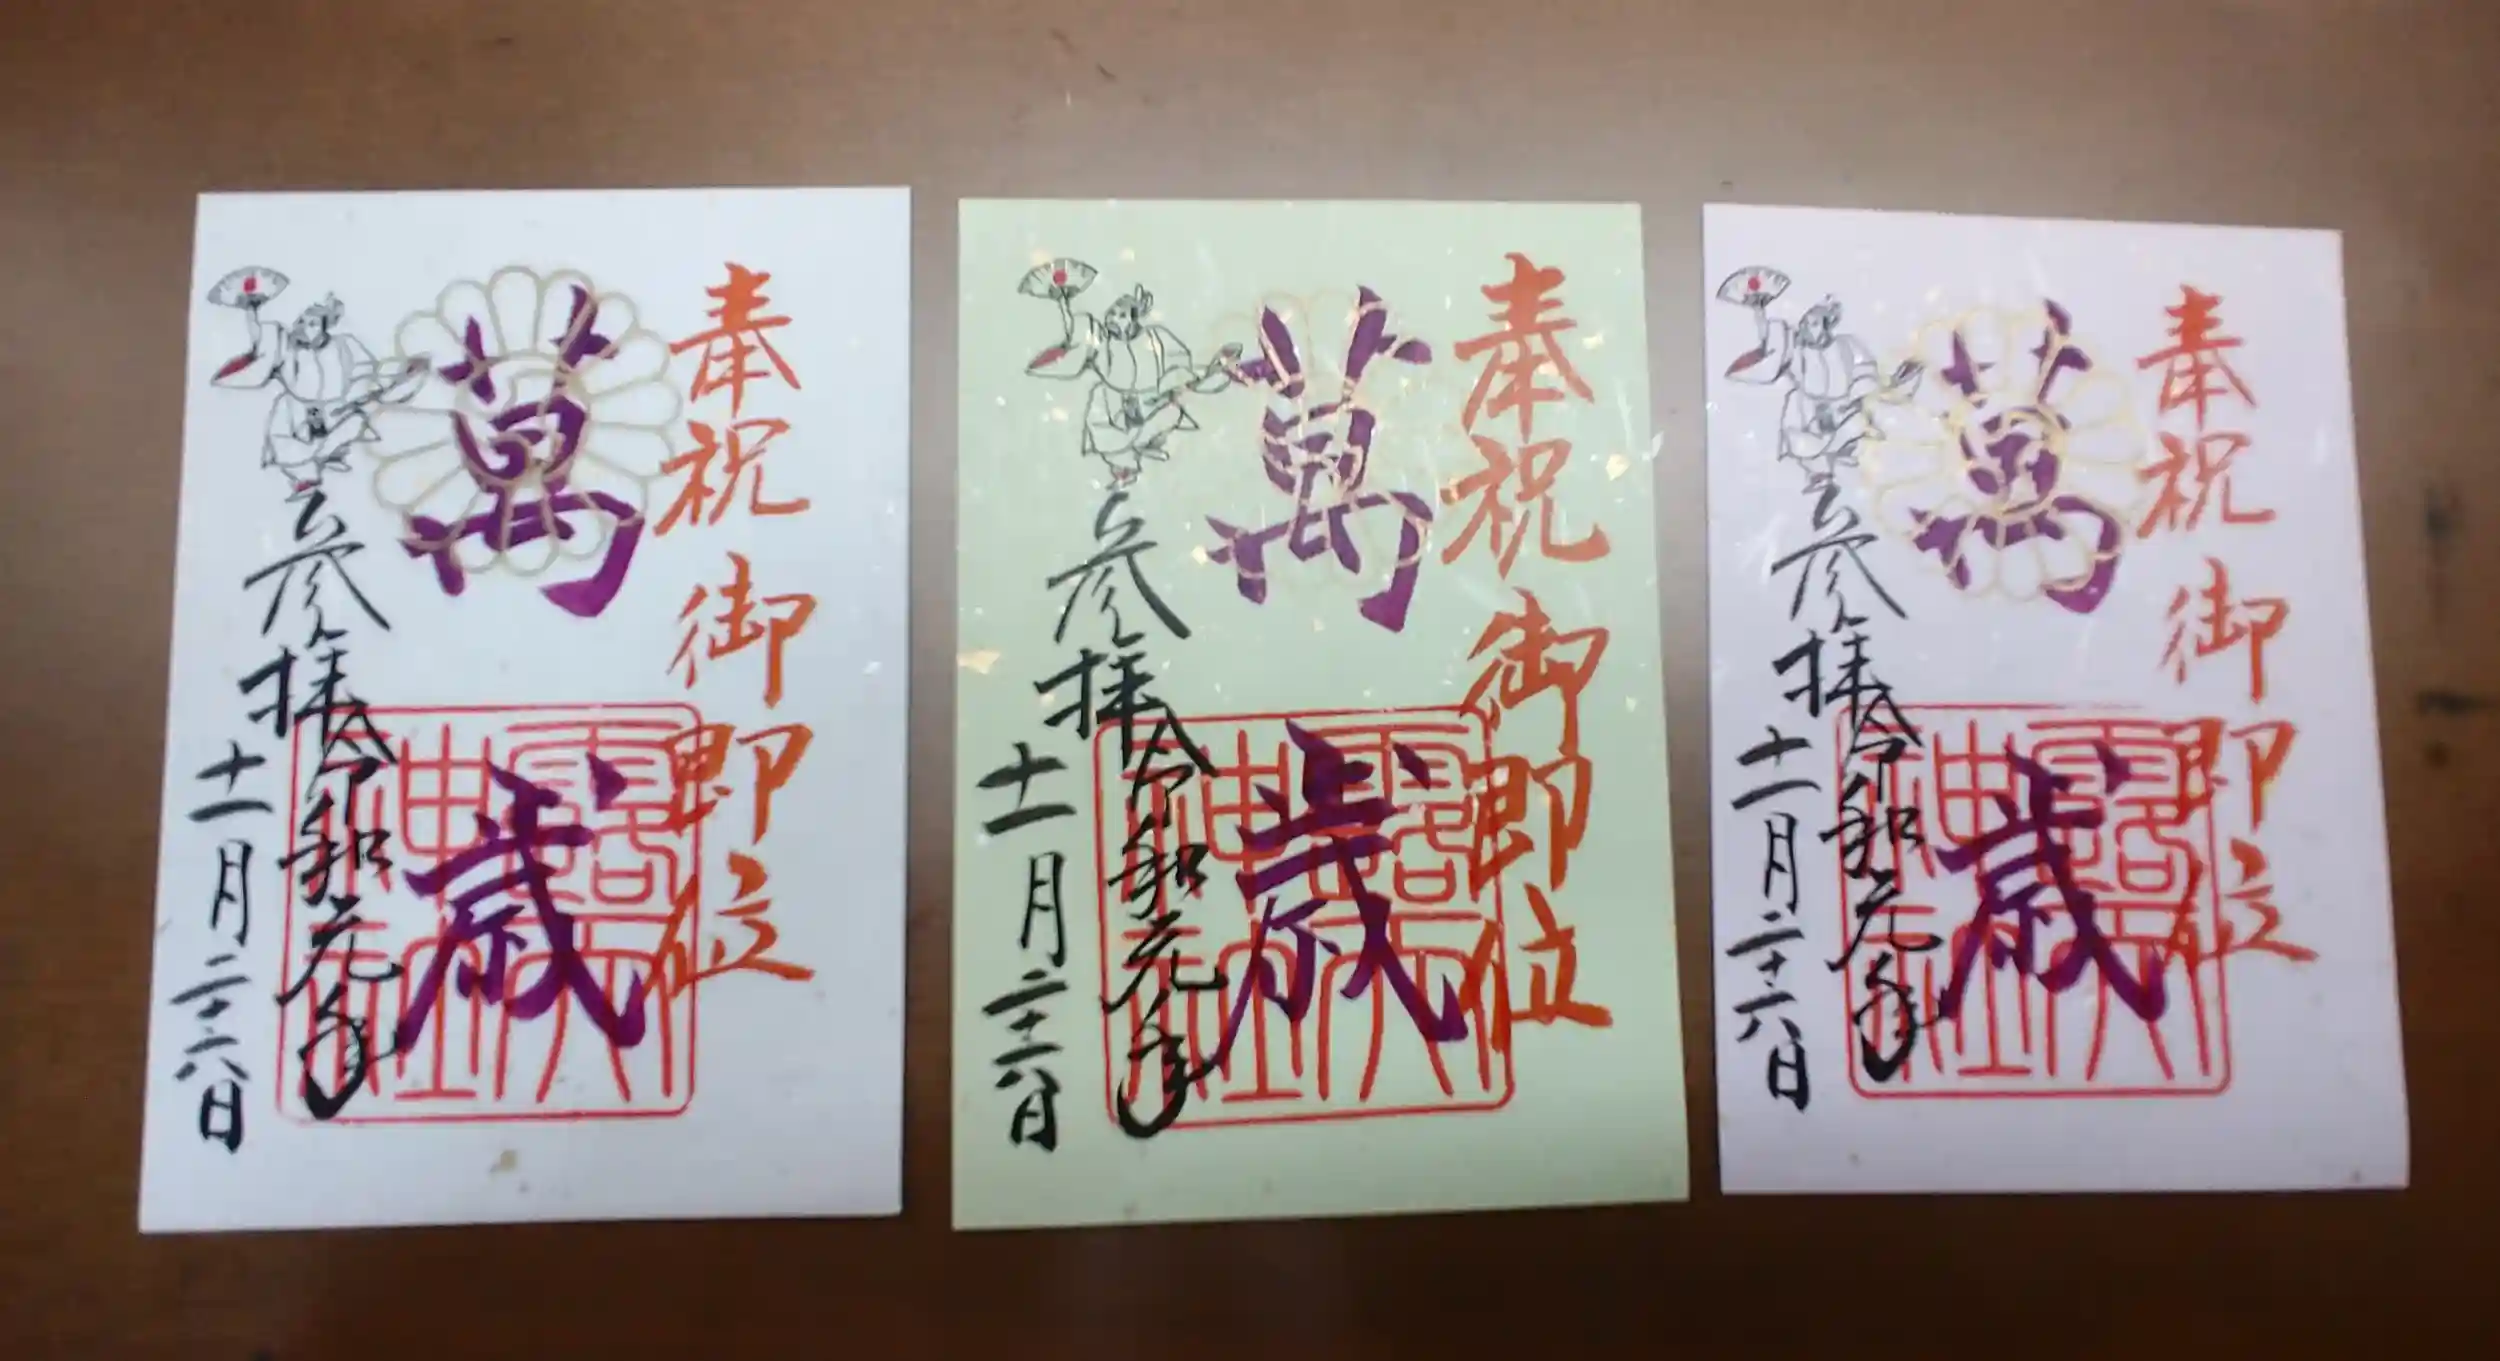 奉祝 御即位
萬歳
露天
神社
参拝
令和元年
十一月二十六日
奉祝 御即位
萬歳
露天
神社
参拝
令和元年
十一月二十六日
奉祝 御即位
萬歳
露天
神社
参拝
令和元年
十一月二十六日